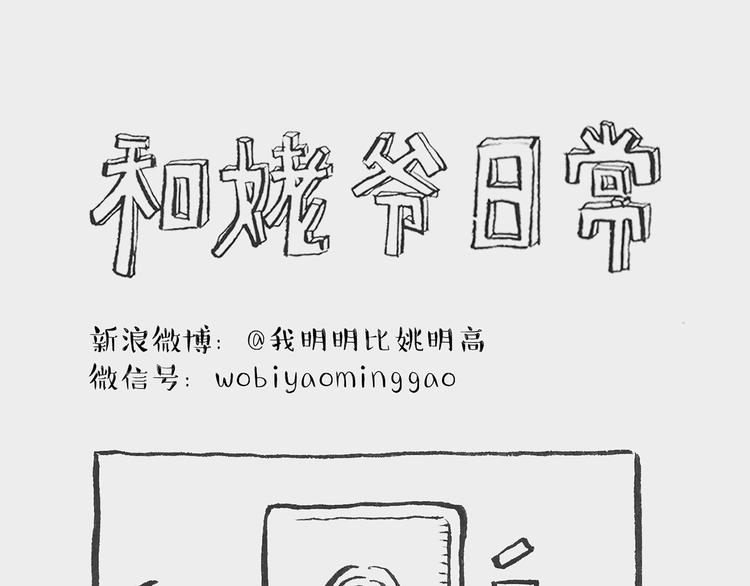 和姥爷日常
新浪微博: @我明明比姚明高
微信号: wobiyaominggao